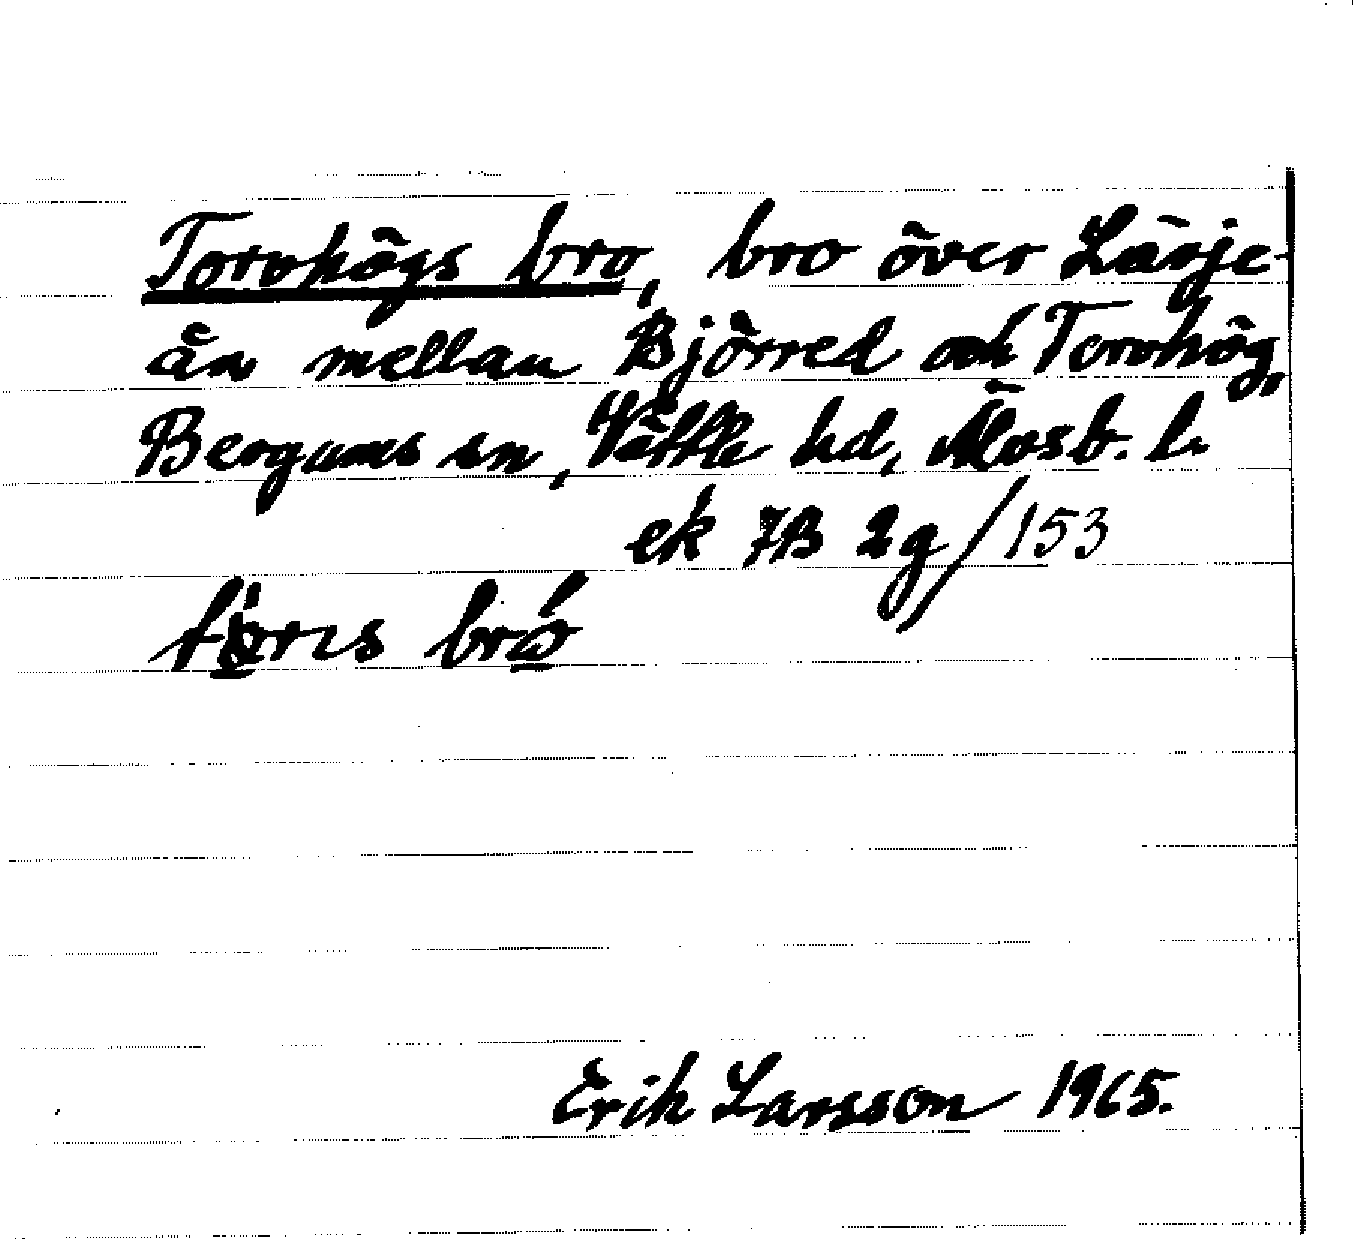 Torvhögs bro, bro över Lärje-
ån mellan Björred och Torvhög,
Bergums sn, Vättle hd, Älvsb. l.
ek 7B 2g/153
Erik Larsson 1965.